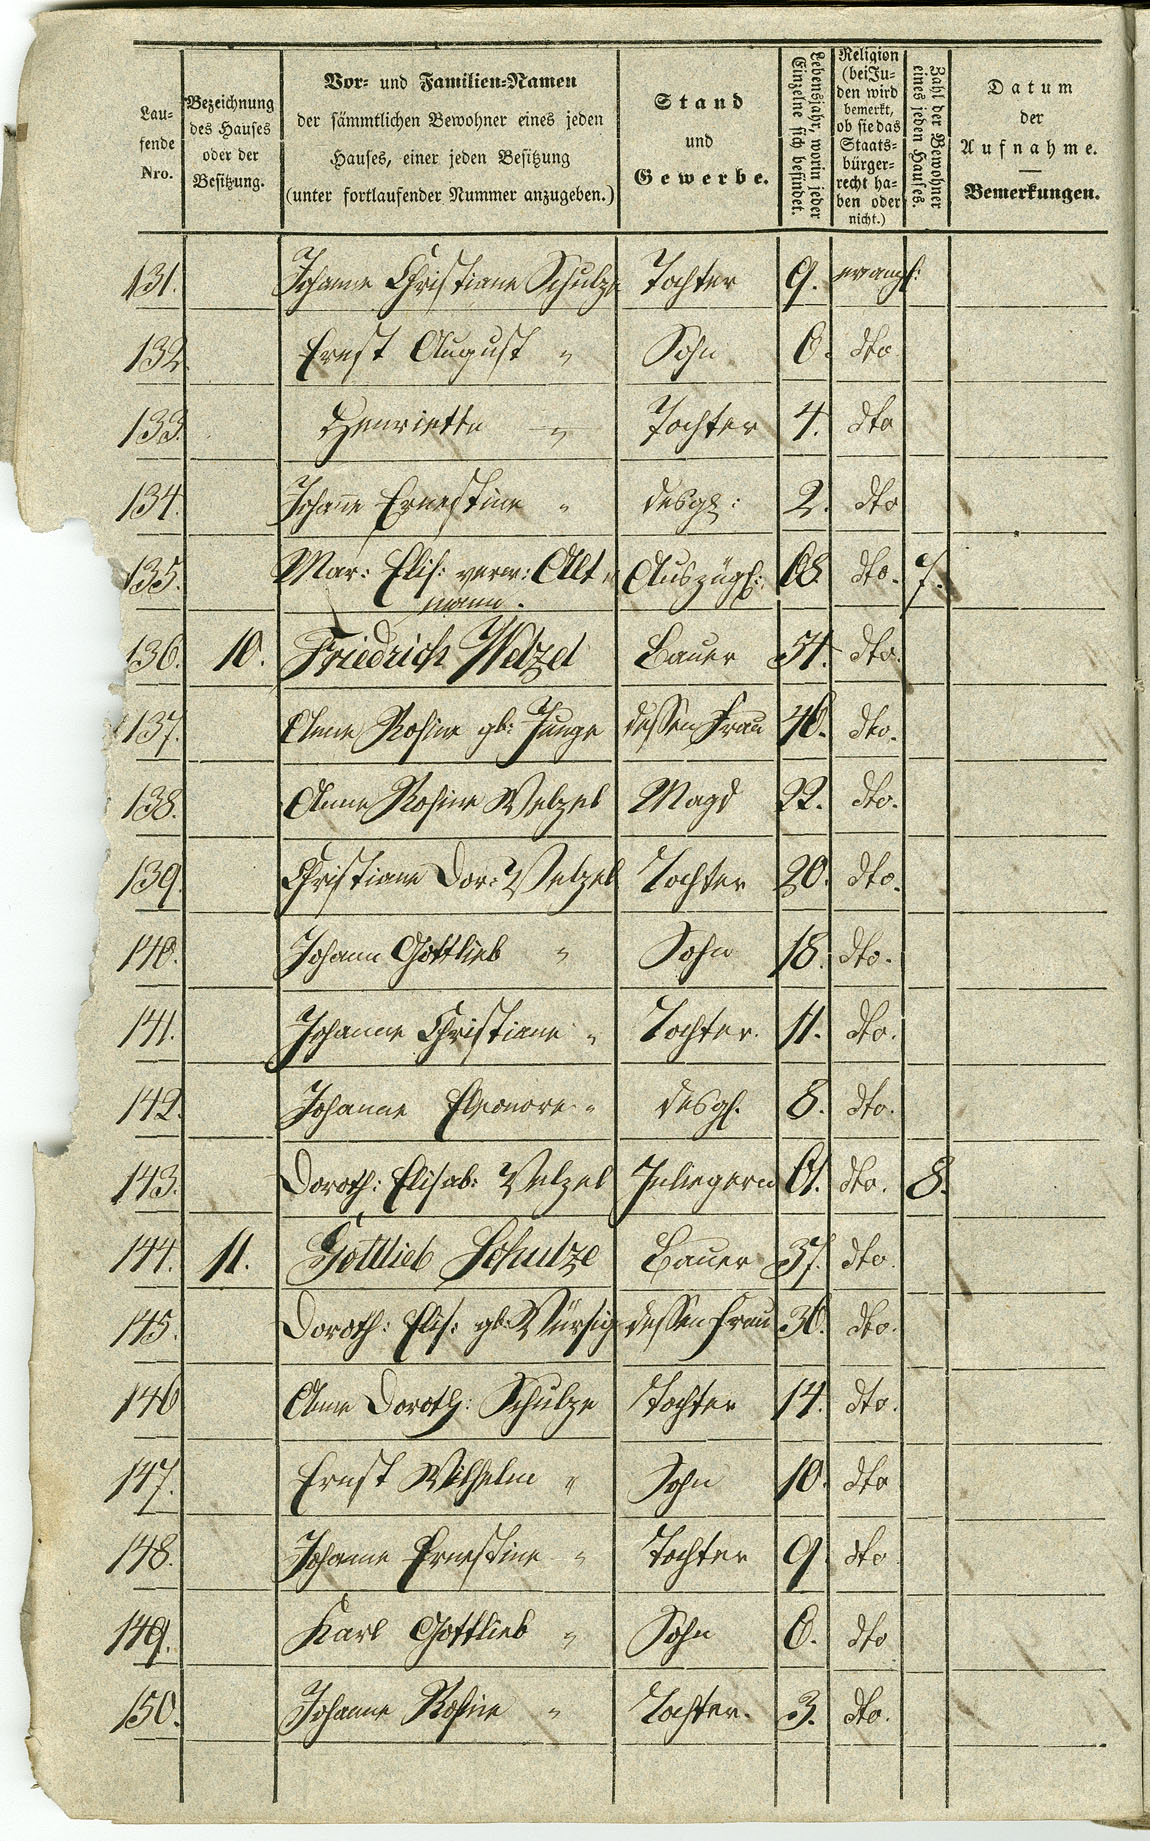 Laufende Nro. | Bezeichnung des Hauses oder der Besitzung. | Vor- und Familien-Namen der sämmtlichen Bewohner eines jeden Hauses, einer jeden Besitzung (unter fortlaufender Nummer anzugeben.) | Stand und Gewerbe. | Lebensjahr, worin jeder Einzelne sich befindet. | Religion (bei Juden wird bemerkt, ob sie das Staatsbürgerrecht haben oder nicht.) | Zahl der Bewohner eines jeden Hauses. | Datum der Aufnahme. — Bemerkungen.
131. Johanne Christiane Schulze Tochter 9. evangl:
132. Ernst August " Sohn 6. dto
133. Henriette " Tochter 4. dto
134. Johane Ernestine " desgl: 2. dto
135. Mar: Elis: verw: Alt= Auszügl: 68. dto. 7.
mann.
136. 10. Friedrich Welzel Bauer 51. dto.
137. Anne Rosine gb: Junge dessen Frau 46. dto.
138. Anne Rosine Welzel Magd 22. dto.
139. Christiane Dor: Welzel Tochter 20. dto.
140. Johann Gottlieb " Sohn 18. dto.
141. Johanne Christiane " Tochter. 11. dto.
142. Johanne Eleonore " desgl. 8. dto.
143. Doroth: Elisab: Welzel Inliegerin 61. dto. 8.
144. 11. Gottlieb Schulze Bauer 37. dto.
145. Doroth: Elis: gb: Würsig dessen Frau 36. dto.
146 Anne Doroth: Schulze Tochter 14. dto.
147. Ernst Wilhelm " Sohn 10. dto
148. Johanne Ernestine " Tochter 9. dto.
149. Karl Gottlieb " Sohn 6. dto
150. Johanne Rosine " Tochter. 3. dto.